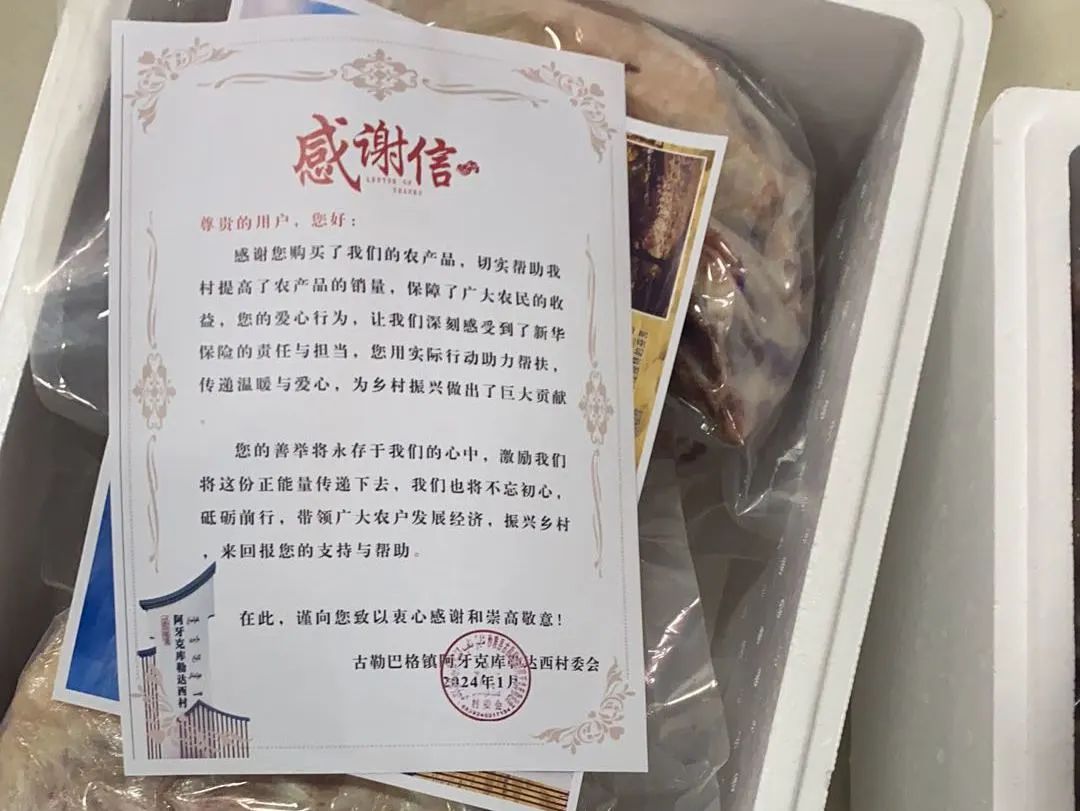 感谢信
LETTER OF
THANKS
尊贵的用户，您好：
感谢您购买了我们的农产品，切实帮助我
村提高了农产品的销量，保障了广大农民的收
益，您的爱心行为，让我们深刻感受到了新华
保险的责任与担当，您用实际行动助力帮扶，
传递温暖与爱心，为乡村振兴做出了巨大贡献
。
您的善举将永存于我们的心中，激励我们
将这份正能量传递下去，我们也将不忘初心，
砥砺前行，带领广大农户发展经济，振兴乡村
，来回报您的支持与帮助。
在此，谨向您致以衷心感谢和崇高敬意！
古勒巴格镇阿牙克库勒达西村委会
2024年1月
村委会
阿牙克库勒达西村